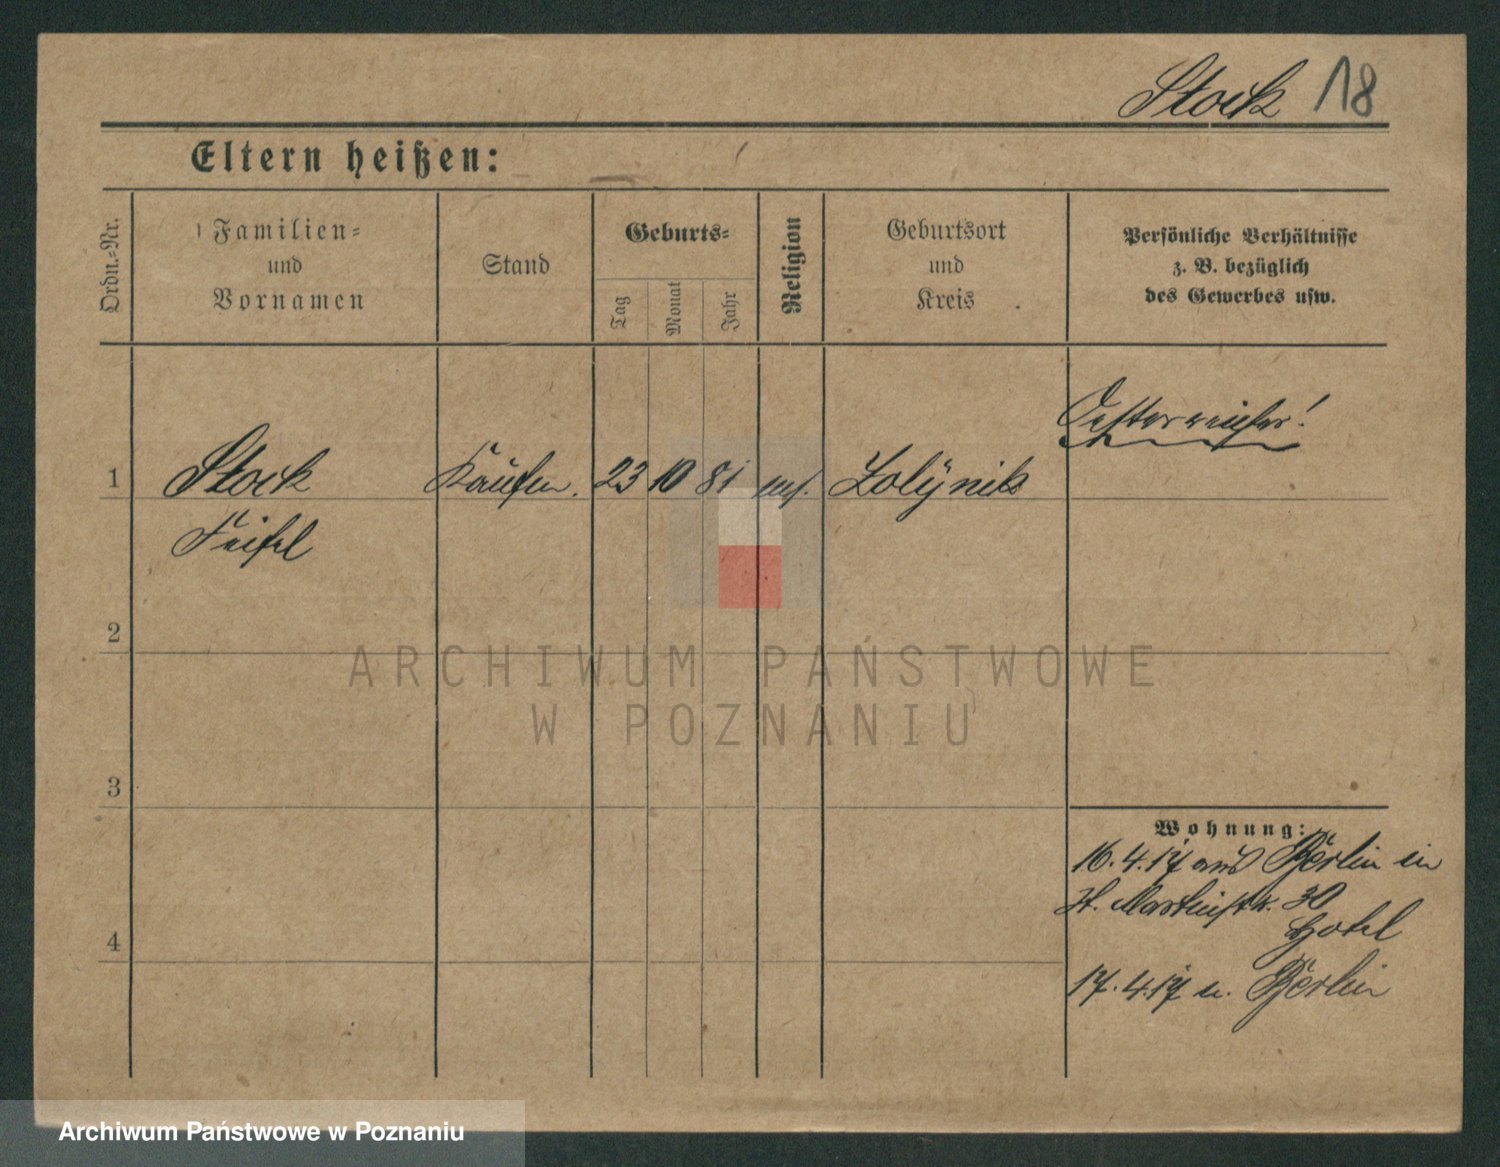 Stock 18
Eltern heißen:
Ordn.-Nr.
Familien-
und
Vornamen
Stand
Geburts-
Tag
Monat
Jahr
Religion
Geburtsort
und
Kreis
Persönliche Verhältnisse
z. B. bezüglich
des Gewerbes usw.
Oesterreicher!
1 Stock Kaufm. 23 10 81 Zolynik
Feifel
2
3
4
Wohnung:
16.4.17 aus Berlin in
St. Martinstr. 30
Hotel
17.4.17 n. Berlin
ARCHIWUM PAŃSTWOWE
W POZNANIU
Archiwum Państwowe w Poznaniu